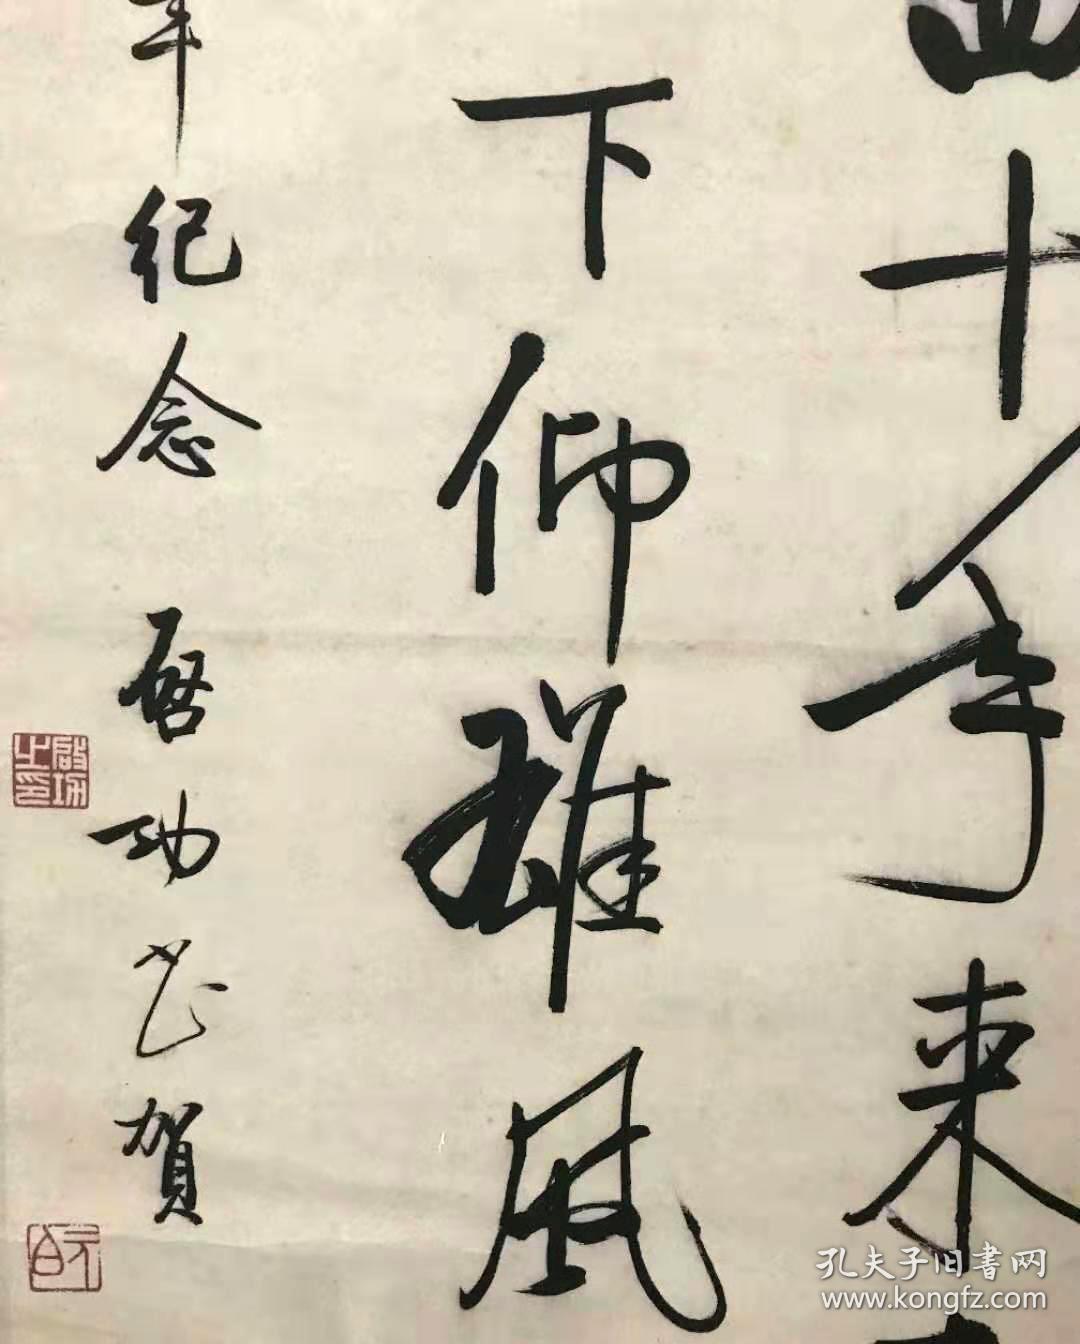 四十年来
下仰雄风
年纪念 启功书贺
启功之印
元白
孔夫子旧书网
www.kongfz.com